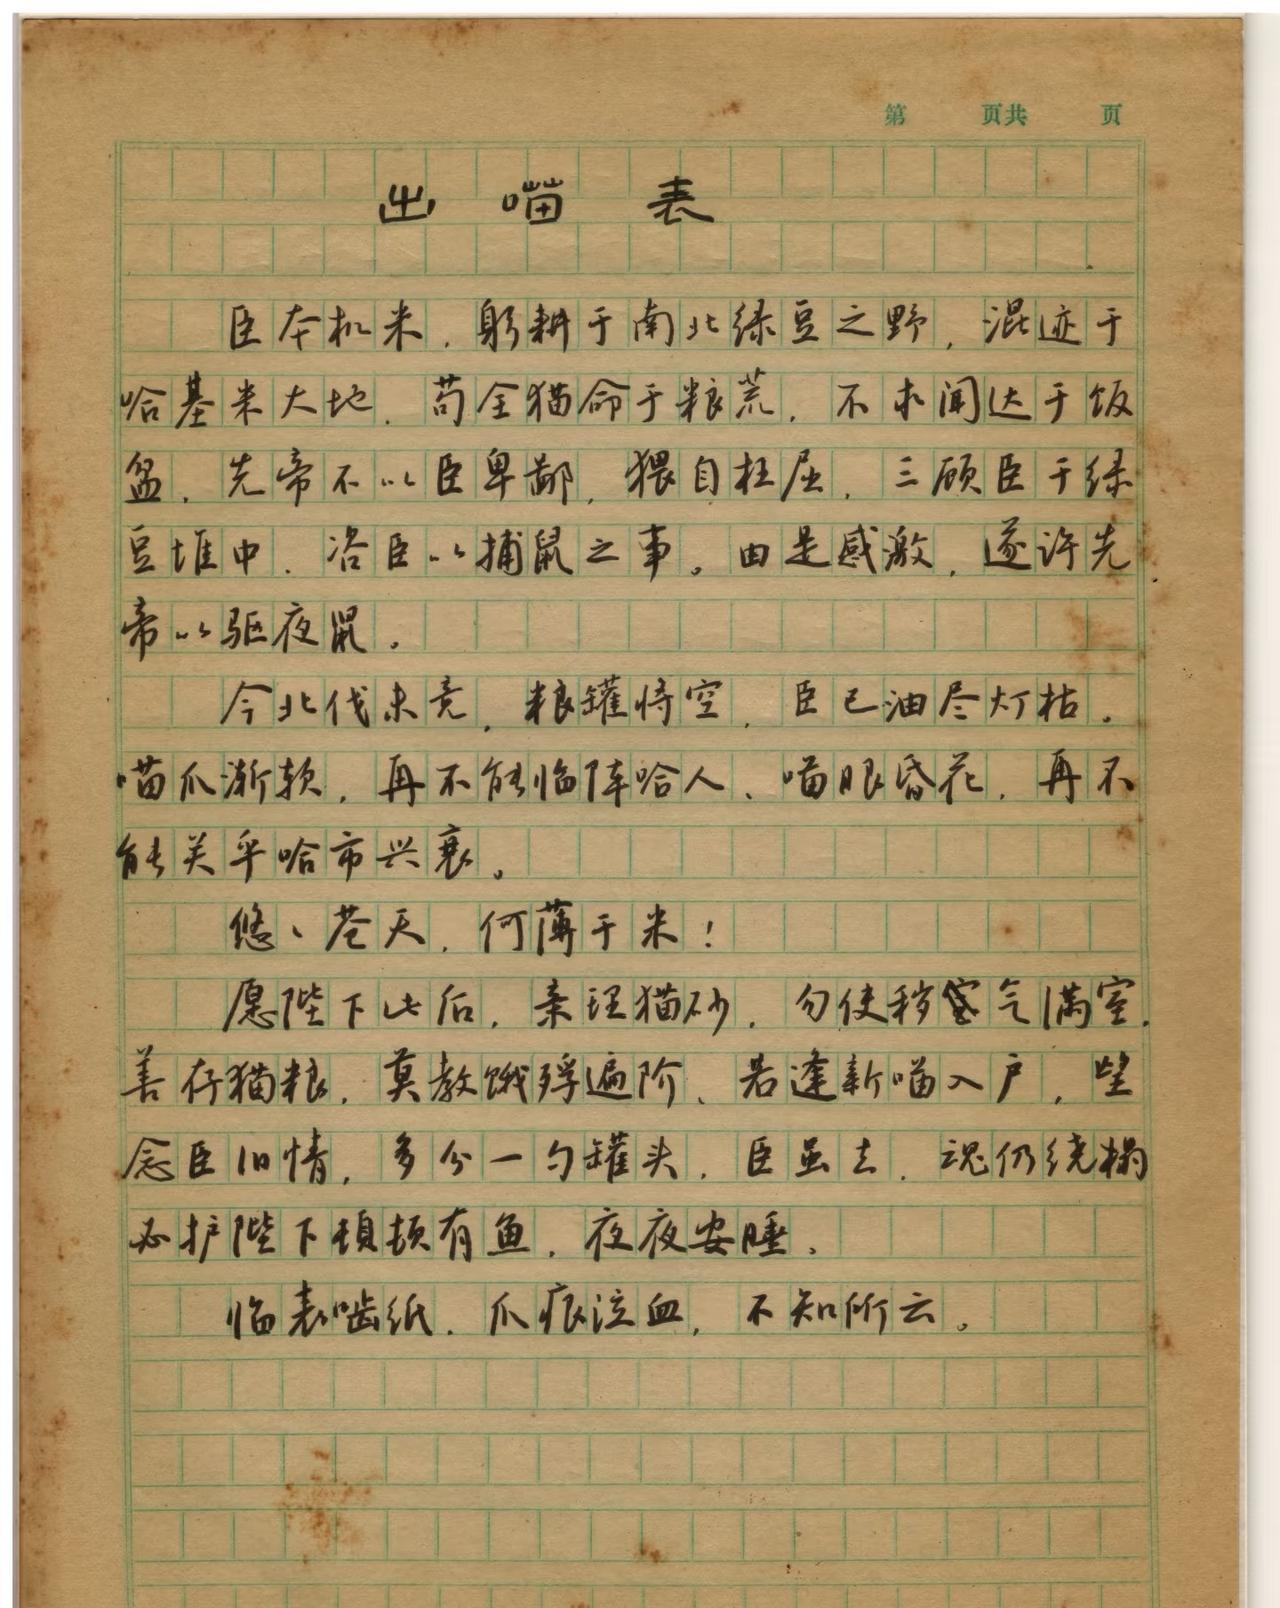 第 页共 页
出喵表
臣本机米，躬耕于南北绿豆之野，混迹于
哈基米大地，苟全猫命于粮荒，不求闻达于饭
盆，先帝不以臣卑鄙，猥自枉屈，三顾臣于绿
豆堆中，咨臣以捕鼠之事。由是感激，遂许先
帝以驱夜鼠。
今北伐未竞，粮罐将空，臣已油尽灯枯。
喵爪渐软，再不能临阵哈人、喵眼昏花，再不
能关乎哈市兴衰。
悠、苍天，何薄于米！
愿陛下此后，亲理猫砂，勿使秽气满室，
善存猫粮，莫教饿殍遍阶、若逢新喵入户，望
念臣旧情，多分一勺罐头，臣虽去，魂仍绕榻
必护陛下顿顿有鱼，夜夜安睡，
临表啮纸，爪痕泣血，不知所云。